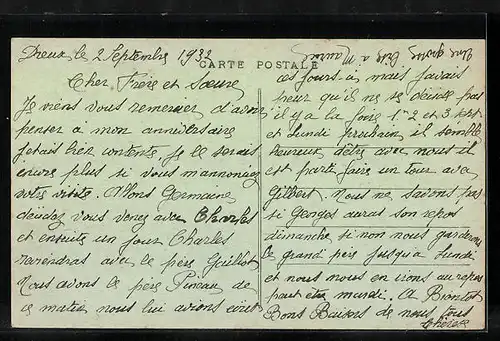 Dreux le 2 Septembre 1932
CARTE POSTALE
Cher, Frère et Sœure
Je viens vous remercier d'avoir
penser a mon anniversaire
jetais bien contente je le serais
encore plus si vous m'annonciez
votre visite. Allons Germaine
décidez vous venez avec Charles
et ensuite un jour Charles
reviendras avec le père Guillot
Nous avons le père Pineau de
ce matin nous lui avions écrit
ces jours-ci mais j'avais
peur qu'il ne se décide pas
il y a la foire 1er 2 et 3 sept
et lundi prochain il semble
heureux d'être avec nous il
est parti faire un tour avec
Gilbert. Nous ne savons pas
si Georges auras son repos
dimanche si non nous garderons
le grand père jusqu'a lundi
et nous nous en irons au repos
peut etre mardi. A Bientôt
Bons Baisers de nous tous
Thérèse